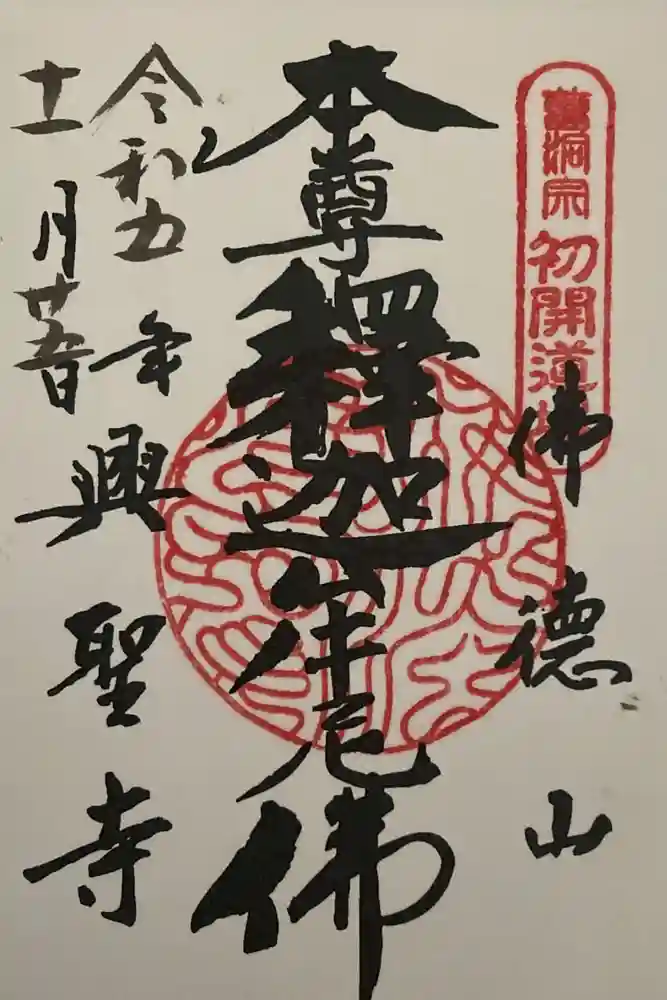 曹洞宗初開道場
佛德山
本尊釋迦牟尼佛
令和五年
十一月廿五日
興聖寺